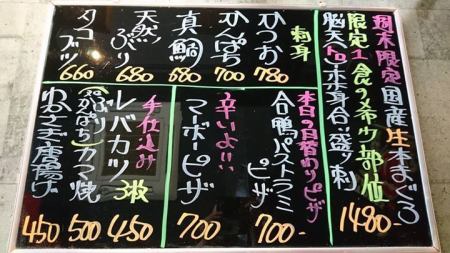 週末限定国産生本まぐろ
限定1食の希少部位
脳天(トロ)・本身合い盛り刺
1480-
刺身
かつお 780
かんぱち 700
真鯛 680
天然ぶり 680
タコブツ 660
本日の日替わりピザ
合鴨パストラミピザ 700-
辛いよ!!
マーボーピザ 700
手仕込み
レバカツ 3枚 450
(かんぱち)カマ焼 500
ゆうさぎ唐揚げ 450